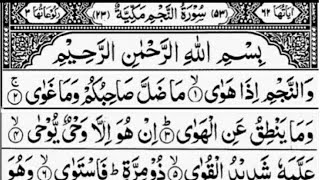 اٰيَاتُهَا ٦٢ (٥٣) سُوْرَةُ النَّجْمِ مَكِّيَّةٌ (٢٣) رُكُوْعَاتُهَا ٣
بِسْمِ اللّٰهِ الرَّحْمٰنِ الرَّحِيْمِ
وَالنَّجْمِ اِذَا هَوٰى ۙ﴿۱﴾ مَا ضَلَّ صَاحِبُكُمْ وَمَا غَوٰى ۚ﴿۲﴾
وَمَا يَنْطِقُ عَنِ الْهَوٰى ؕ﴿۳﴾ اِنْ هُوَ اِلَّا وَحْيٌ يُّوْحٰى ۙ﴿۴﴾
عَلَّمَهٗ شَدِيْدُ الْقُوٰى ۙ﴿۵﴾ ذُوْ مِرَّةٍ ؕ فَاسْتَوٰى ۙ﴿۶﴾ وَهُوَ